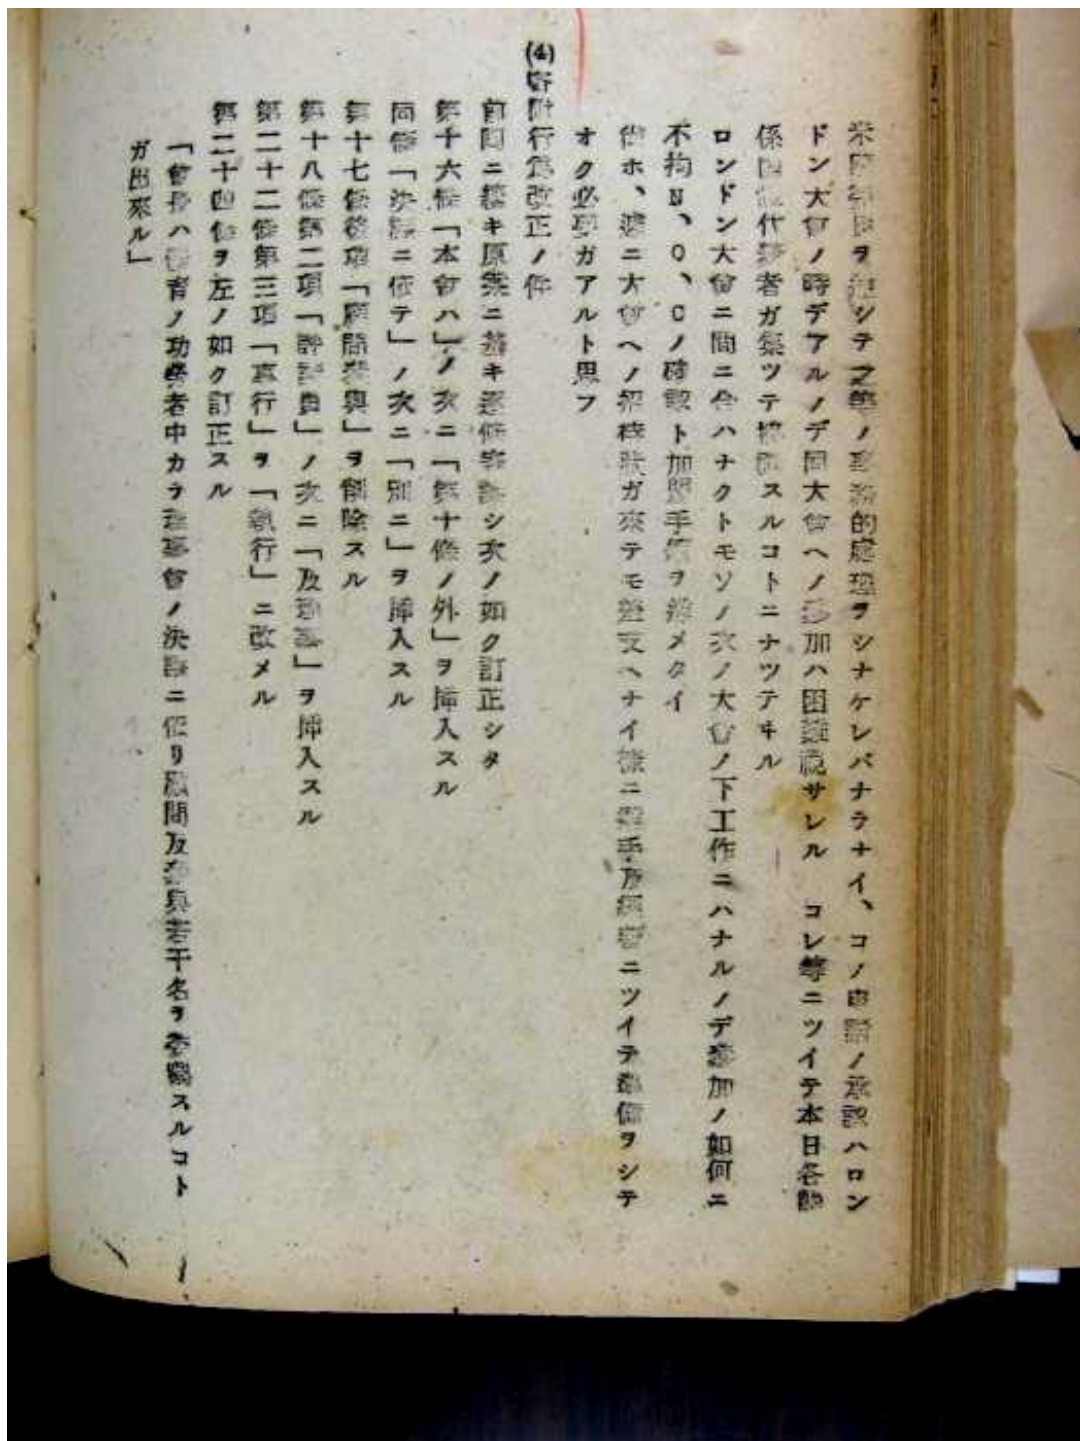 ヲ シテ之等ノ事務的處理ヲシナケレバナラナイ、コノ申請ノ承認ハロン
ドン大會ノ時デアルノデ同大會ヘノ參加ハ困難視サレル コレ等ニツイテ本日各關
係 代 者ガ集ツテ協議スルコトニナツテヰル
ロンドン大會ニ間ニ合ハナクトモソノ次ノ大會ノ下工作ニハナルノデ參加ノ如何ニ
不拘N、O、Cノ確認ト加盟手續ヲ進メタイ
尚ホ、 ニ大會ヘノ招待狀ガ來テモ差支ヘナイ樣ニ選手及 ニツイテ準備ヲシテ
オク必要ガアルト思フ
(4)寄附行爲改正ノ件
前回ニ續キ原案ニ基キ逐條審議シ次ノ如ク訂正シタ
第十六條「本會ハ」ノ次ニ「第十條ノ外」ヲ挿入スル
同條「決議ニ依テ」ノ次ニ「別ニ」ヲ挿入スル
第十七條後項「顧問參與」ヲ削除スル
第十八條第二項「評議員」ノ次ニ「及理事」ヲ挿入スル
第二十二條第三項「眞行」ヲ「執行」ニ改メル
第二十四條ヲ左ノ如ク訂正スル
「會長ハ體育ノ功勞者中カラ理事會ノ決議ニ依リ顧問及參與若干名ヲ委囑スルコト
ガ出來ル」